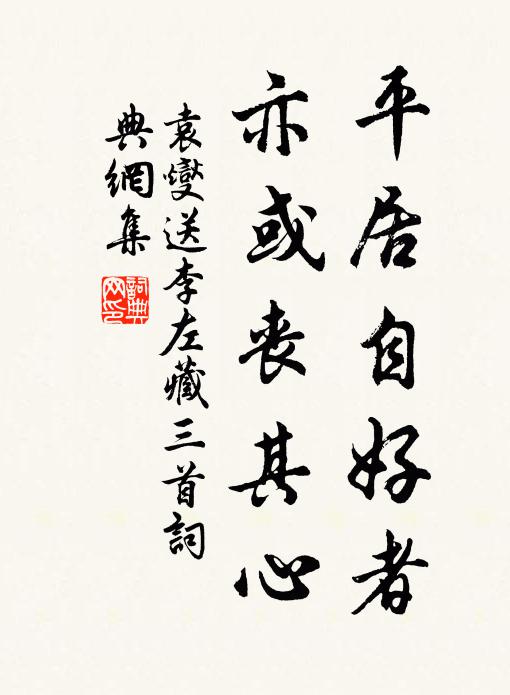 平居自好者
亦或丧其心
袁燮送李左藏三首詞
典網集
詞典網印